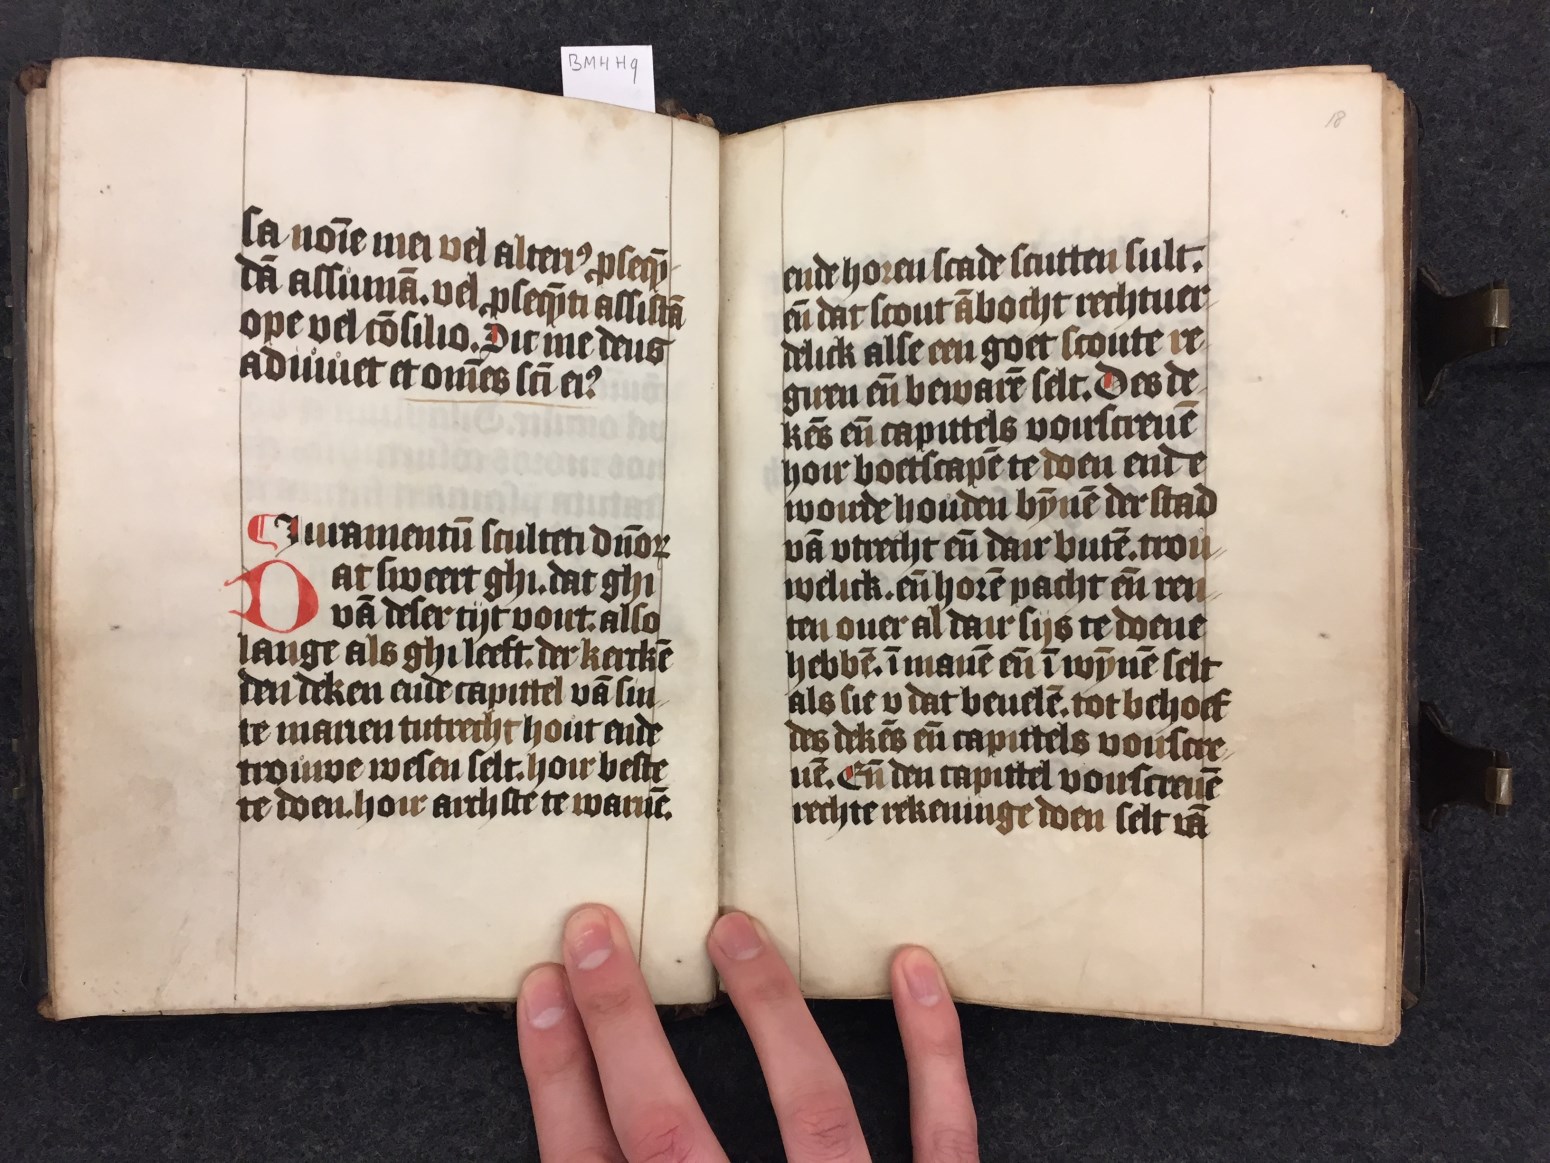 BMHH9
sa no&#772;ie mei vel alteriꝰ ꝓseq̄
dā assumā. vel ꝓseq̄ti assistā
ope vel cōsilio. Sic me deus
adiuuet et om̄es sc̄i eiꝰ
¶ Iuramentū sculteti dn̄oꝝ
Dat sweert ghi. dat ghi
vā deser tijt vort. also
lange als ghi leeft. der kerckē
den deken ende capittel vā sin//
te marien tutrecht hout ende
trouwe wesen selt. hoir beste
te doen. hoir archste te warnē.
18
ende horen scade scutten sult.
en̄ dat scoutābocht rechtuer
delick alse een goet scoute re
guren en̄ bewarē selt. Des de
kēs en̄ capittels voirscreuē
hoir boetscapē te doen ende
worde houden bȳnē der stad
vā vtrecht en̄ dair butē. trou//
welick. en̄ horē pacht en̄ ren//
ten ouer al dair sijs te doene
hebbē. ī manē en̄ ī wȳnē selt
als sie v dat beuelē. tot behoef
des dekēs en̄ capittels voirscre//
uē. En̄ den capittel voirscreuē
rechte rekeninge doen selt vā